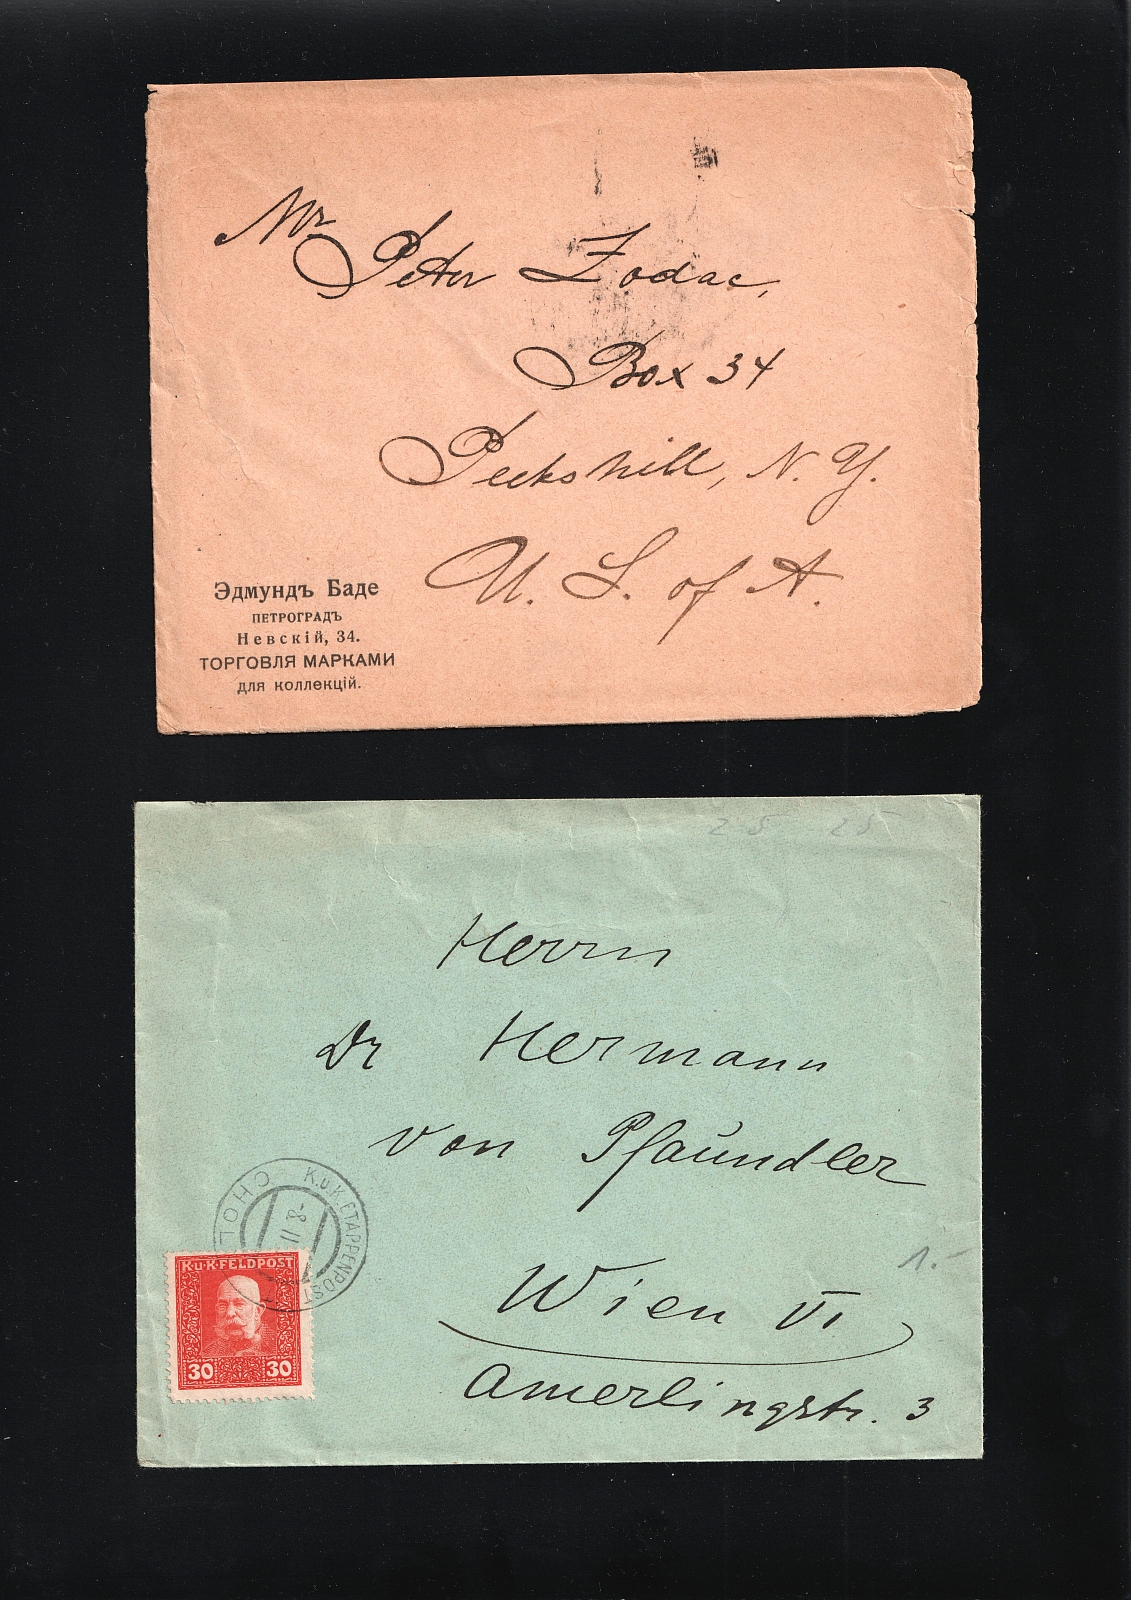 Mr
Peter Zodac,
Box 34
Peekshill, N. Y.
U. S. of A.
Эдмундъ Баде
ПЕТРОГРАДЪ
Невскій, 34.
ТОРГОВЛЯ МАРКАМИ
для коллекцій.
25 25
Herrn
Dr Hermann
von Pfaundler
K.u.K. ETAPPENPOST
CHOL
-8 II
K·u·K·FELDPOST
30 30
1.-
Wien VI
Amerlingstr. 3